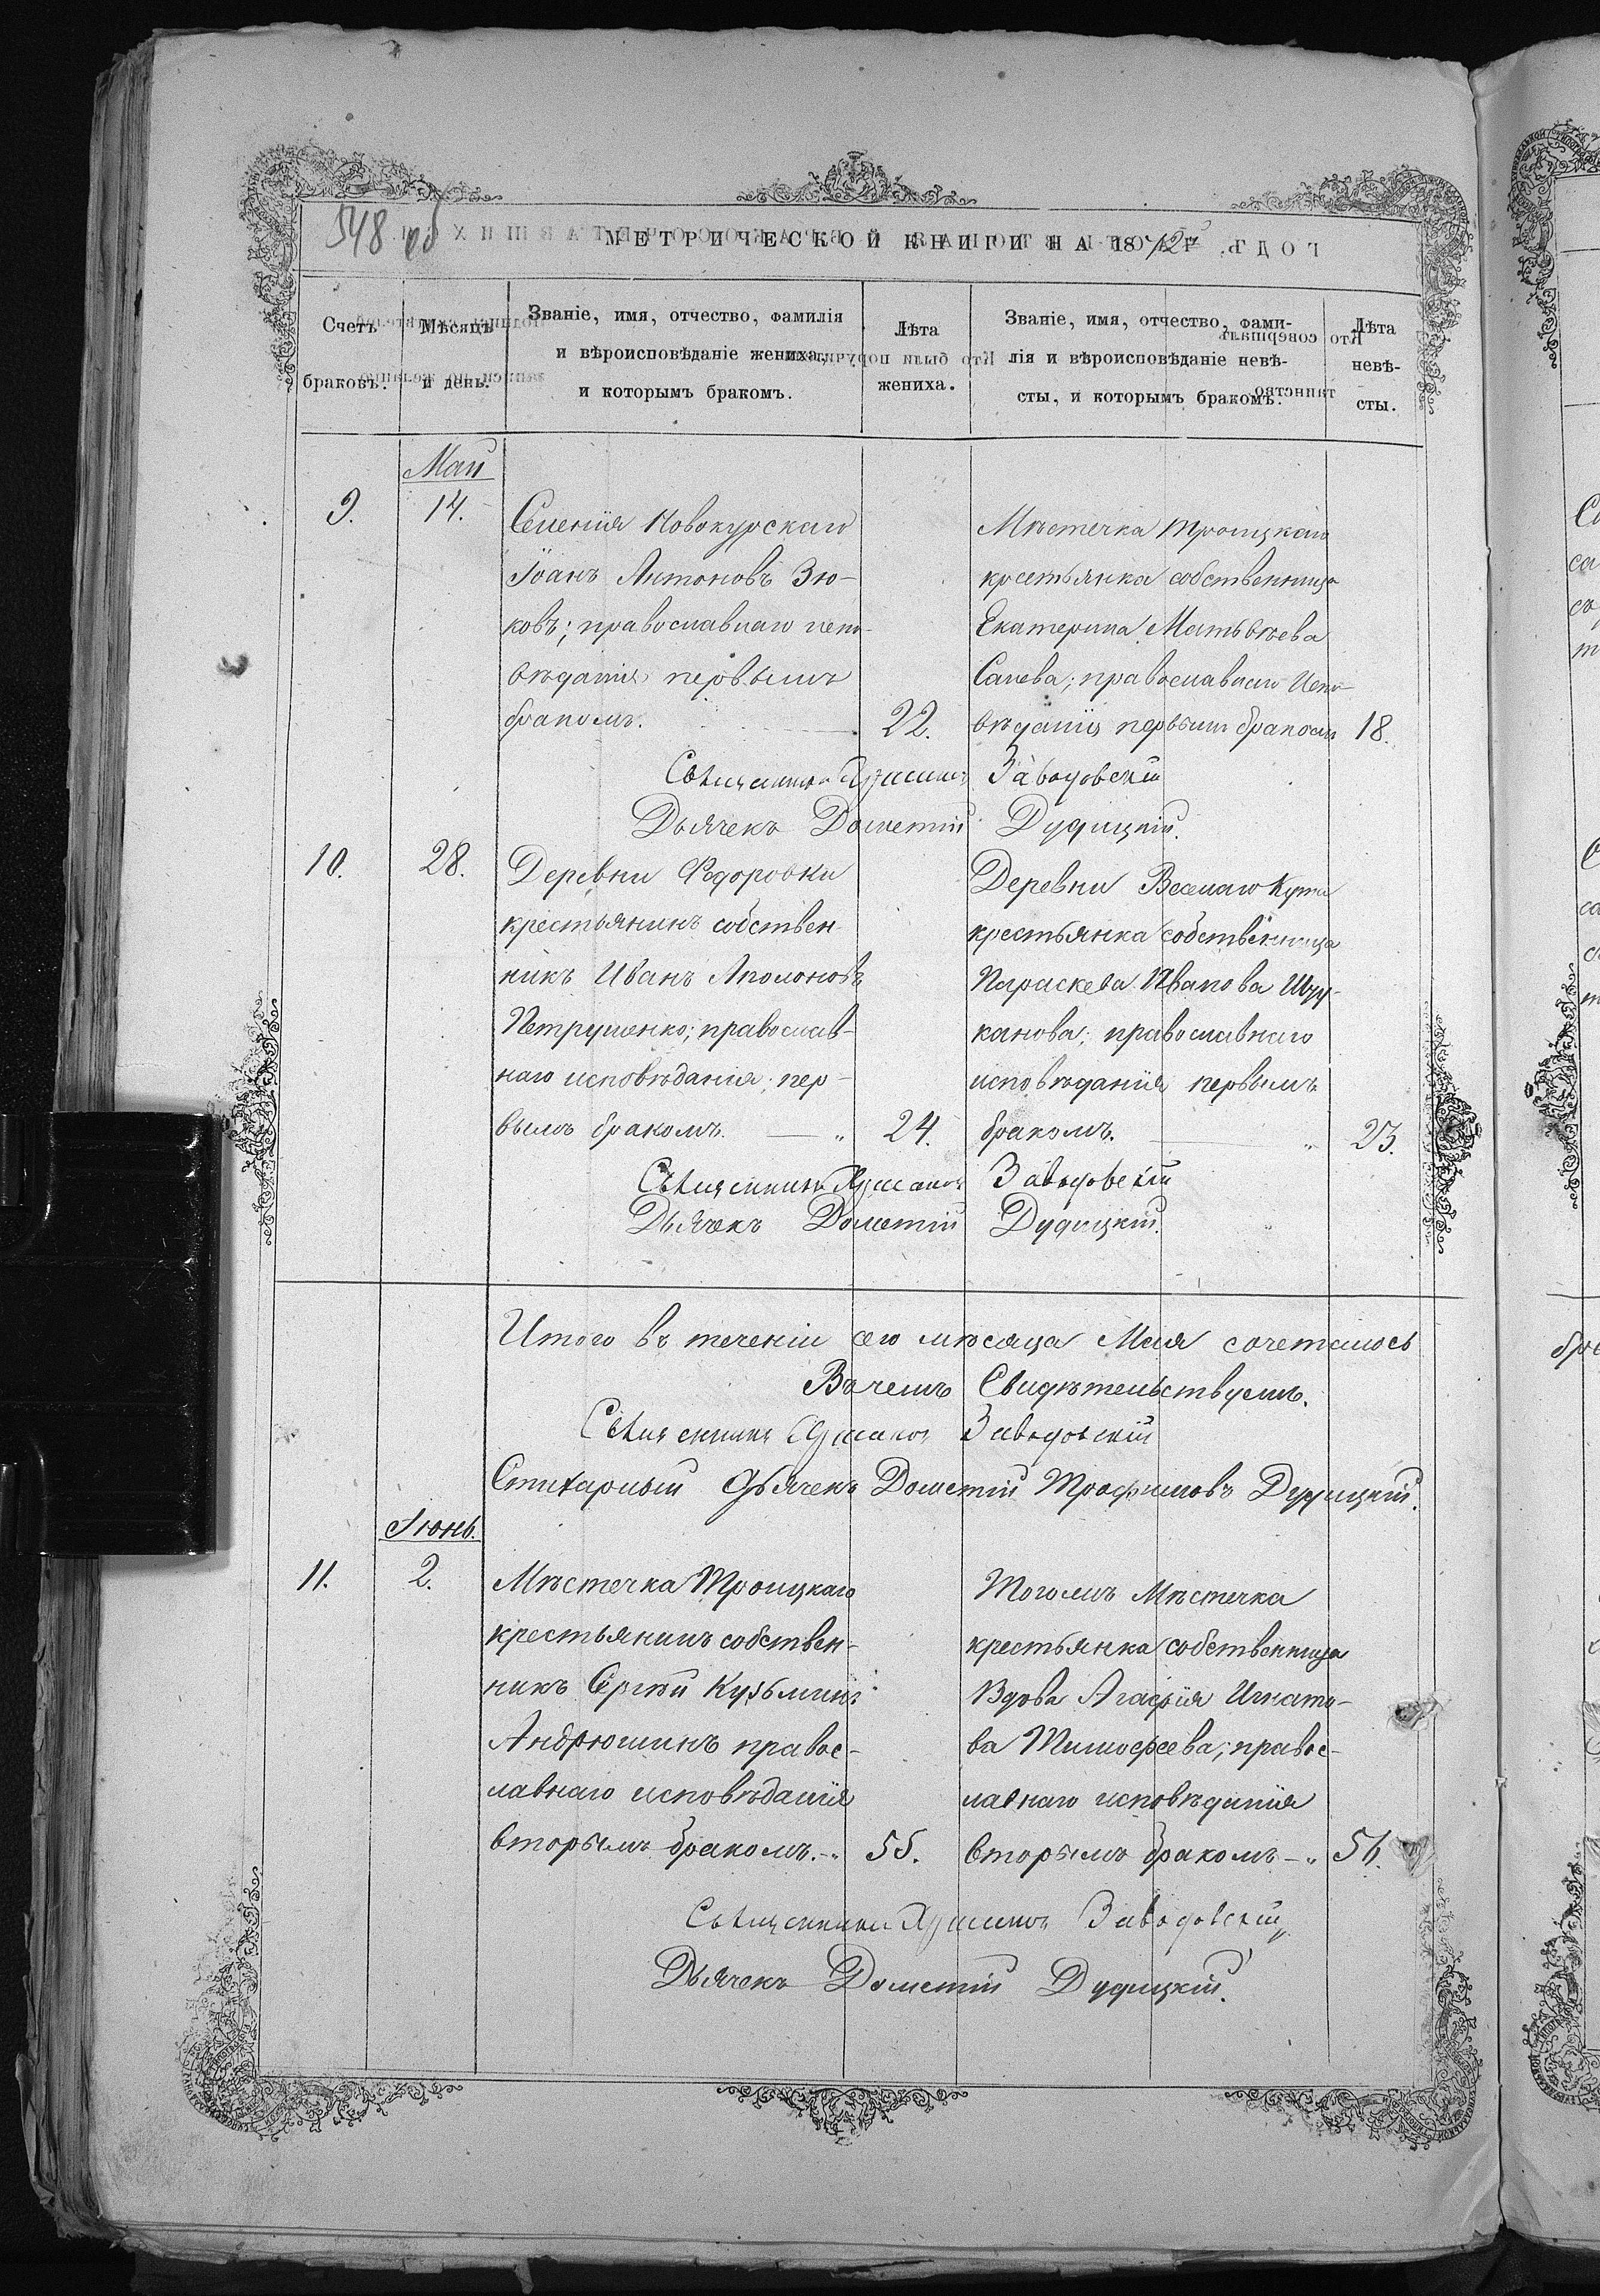 548 об
МЕТРИЧЕСКОЙ КНИГИ НА 1872
Счетъ браковъ.
Мѣсяцъ и день.
Званіе, имя, отчество, фамилія
и вѣроисповѣданіе жениха,
и которымъ бракомъ.
Лѣта
жениха.
Званіе, имя, отчество, фами-
лія и вѣроисповѣданіе невѣ-
сты, и которымъ бракомъ.
Лѣта
невѣ-
сты.
Май
9. 14.
Селенія Новокурскаго
Іоанъ Антоновъ Зю-
ковъ; православнаго испо-
вѣданія первымъ
бракомъ. 22.
Мѣстечка Троицкаго
крестьянка собственница
Екатерина Матвѣева
православнаго Испо-
вѣданія первымъ бракомъ 18.
Священникъ Заводовскій
Дьячекъ Дометій Дудицкій.
10. 28.
Деревни Федоровки
крестьянинъ собствен-
никъ Иванъ Аполоновъ
Петрушенко; православ-
наго исповѣданія; пер-
вымъ бракомъ. 24.
Деревни Веселаго Кута
крестьянка собственница
Параскева Иванова Шу-
канова; православнаго
исповѣданія первымъ
бракомъ. 23.
Священникъ Заводовскій
Дьячекъ Дометій Дудицкій.
Итого въ теченіи сего мѣсяца Мая сочеталось
Въ чемъ Свидѣтельствуемъ.
Священникъ Заводовскій
Стихарный Дьячекъ Дометій Трофимовъ Дудицкій.
Іюнь.
11. 2.
Мѣстечка Троицкаго
крестьянинъ собствен-
никъ Сергѣй Кузьминъ
Андрюшинъ правос-
лавнаго исповѣданія
вторымъ бракомъ. 55.
Тогожъ Мѣстечка
крестьянка собственница
Вдова Агафія Игнато-
ва Тимофеева; правос-
лавнаго исповѣданія
вторымъ бракомъ 56.
Священникъ Заводовскій
Дьячекъ Дометій Дудицкій.